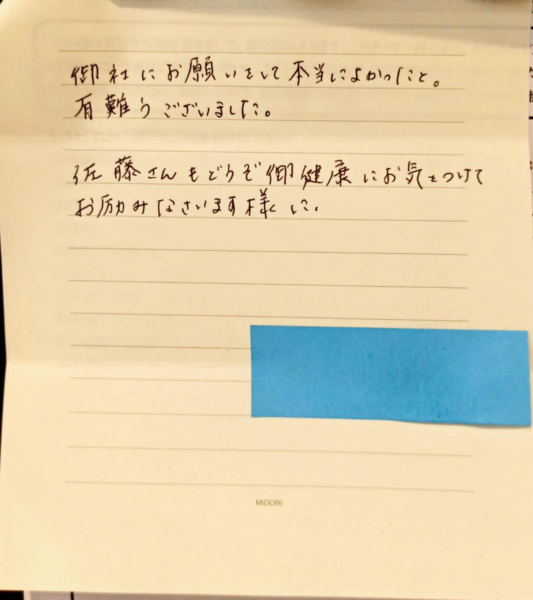 御社にお願いをして本当によかったこと。
有難うございました。
佐藤さんもどうぞ御健康にお気をつけて
お励みなさいます様に.
MIDORI